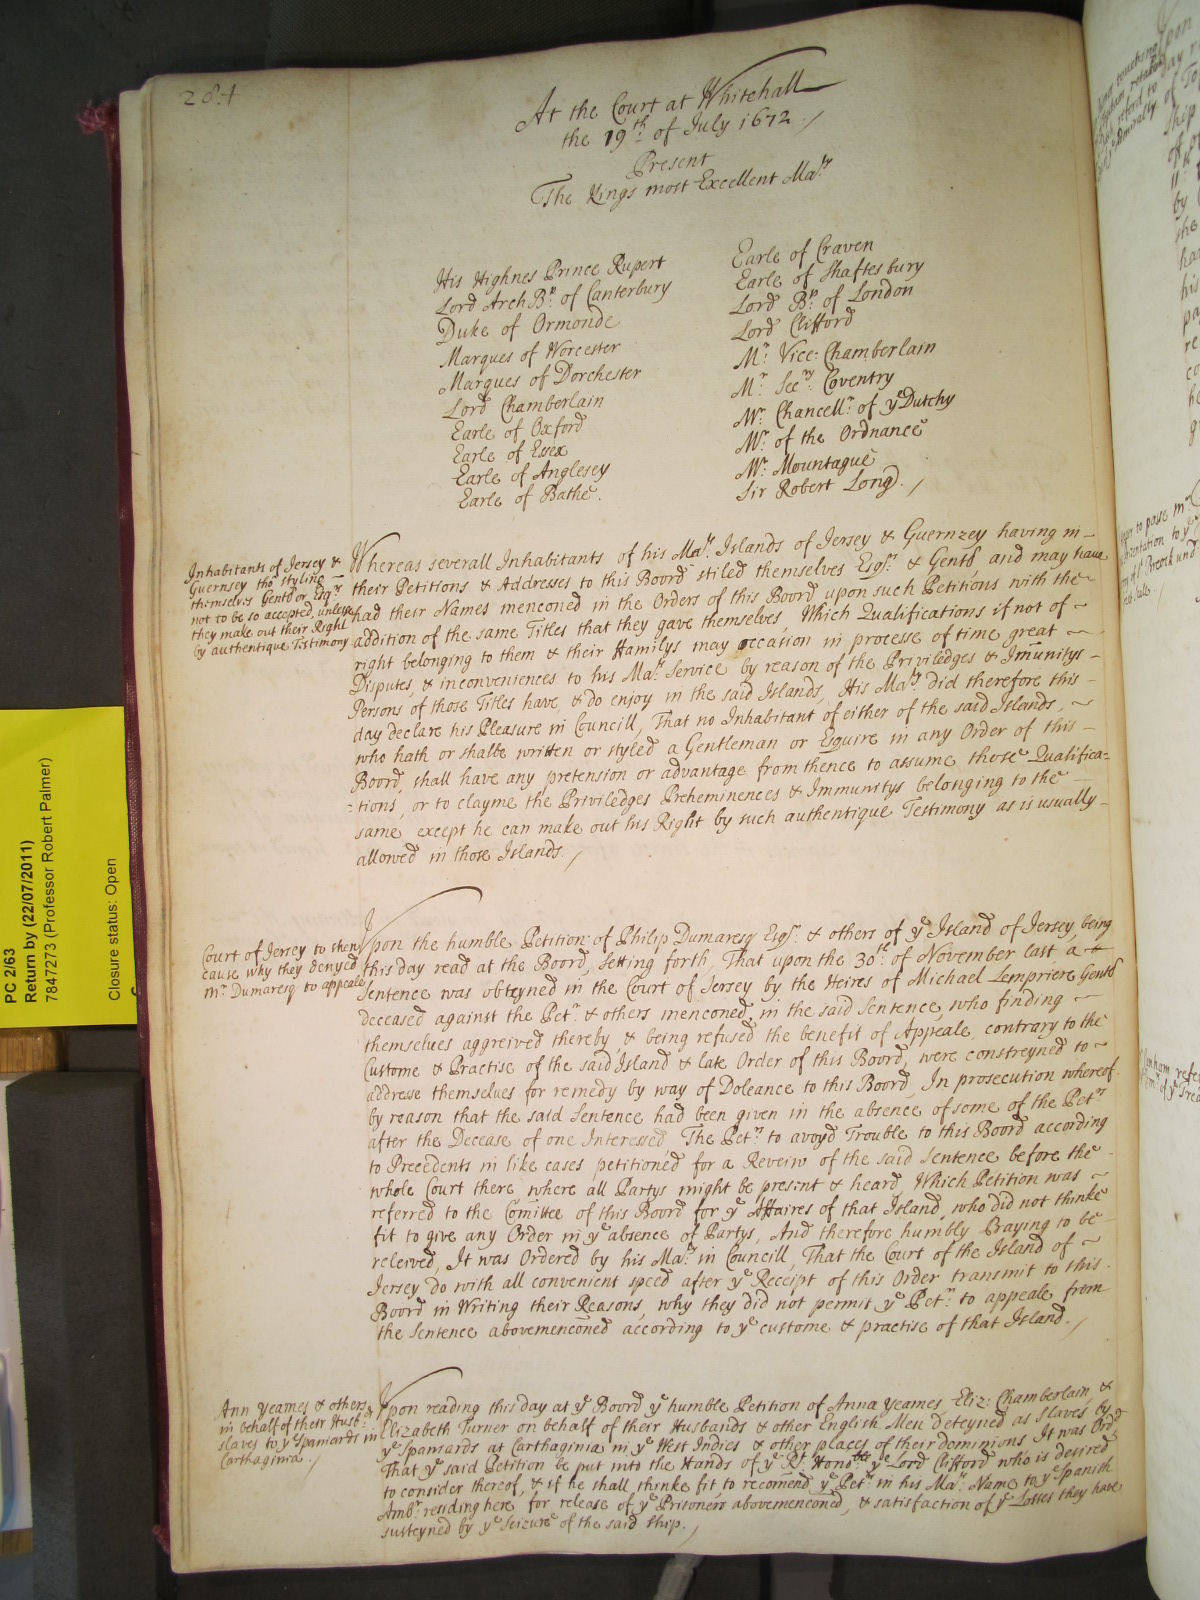 284
At the Court at Whitehall
the 19th of July 1672
Present
The Kings most Excellent Maty
His Highnes Prince Rupert
Lord Arch Bp: of Canterbury
Duke of Ormonde
Marques of Worcester
Marques of Dorchester
Lord Chamberlain
Earle of Oxford
Earle of Essex
Earle of Anglesey
Earle of Bathe.
Earle of Craven
Earle of Shaftesbury
Lord Bp: of London
Lord Clifford
Mr: Vice: Chamberlain
Mr: Secry: Coventry
Mr: Chancellr: of ye Dutchy
Mr: of the Ordnance
Mr: Mountague
Sir Robert Long.
Inhabitants of Jersey &
Guernsey tho' styling
themselves Gents or Esqrs
not to be so accepted, unlesse
they make out their Right
by authentique Testimony
Whereas severall Inhabitants of his Mats: Islands of Jersey & Guernzey having in
their Petitions & Addresses to this Board stiled themselves Esqrs: & Gents, and may have
had their Names menconed in the Orders of this Board upon such Petitions with the
addition of the same Titles that they gave themselves, Which Qualifications if not of
right belonging to them & their Familys may occasion in processe of time great
Disputes, & inconveniences to his Mats: Service by reason of the Priviledges & Imunitys
Persons of those Titles have, & do enjoy in the said Islands, His Maty: did therefore this
day declare his Pleasure in Councill, That no Inhabitant of either of the said Islands,
who hath or shalbe written or styled a Gentleman or Esquire in any Order of this
Board, shall have any pretension or advantage from thence to assume those Qualifica=
=tions, or to clayme the Priviledges Preheminences & Immunitys belonging to the
same, except he can make out his Right by such authentique Testimony as is usually
allowed in those Islands.
Court of Jersey to shew
cause why they denyed
Mr: Dumaresq to appeale
Upon the humble Petition of Philip Dumaresq Esqr: & others of ye Island of Jersey, being
this day read at the Board, Setting forth, That upon the 30th of November last, a
Sentence was obteyned in the Court of Jersey by the Heires of Michael Lempriere Gent
deceased against the Petrs: & others menconed in the said Sentence, who finding
themselues aggreived thereby & being refused the benefit of Appeale, contrary to the
Custome & Practise of the said Island & late Order of this Board, were constreyned to
addresse themselues for remedy by way of Doleance to this Board, In prosecution whereof
by reason that the said Sentence had been given in the absence of some of the Petrs:
after the Decease of one Interessed, The Petrs: to avoyd Trouble to this Board according
to Precedents in like cases petitioned for a Reveiw of the said Sentence before the
whole Court there, where all Partys might be present & heard, Which Petition was
referred to the Comittee of this Board for ye Affaires of that Island, who did not thinke
fit to give any Order in ye absence of Partys, And therefore humbly Praying to be
releived, It was Ordered by his Maty: in Councill, That the Court of the Island of
Jersey do with all convenient speed after ye Receipt of this Order transmit to this
Board in Writing their Reasons, why they did not permit ye Petrs: to appeale from
the Sentence abovemenconed according to ye custome & practise of that Island.
Ann Yeames & others
in behalf of their Husbds:
slaves to ye Spaniards in
Carthaginia.
Upon reading this day at ye Board ye humble Petition of Anna Yeames, Eliz: Chamberlain, &
Elizabeth Turner on behalf of their Husbands & other English Men deteyned as Slaves by
ye Spaniards at Carthaginia in ye West Indies & other places of their dominions It was Ordd
That ye said Petition be put into the Hands of ye Rt: Honoble ye Lord Clifford who is desired
to consider thereof, & if he shall thinke fit to recomend ye Petrs: in his Mats: Name to ye Spanish
Ambr: residing here for release of ye Prisoners abovemenconed, & satisfaction of ye Losses they have
susteyned by ye Seizure of the said Ship.
PC 2/63
Return by (22/07/2011)
7847273 (Professor Robert Palmer)
Closure status: Open